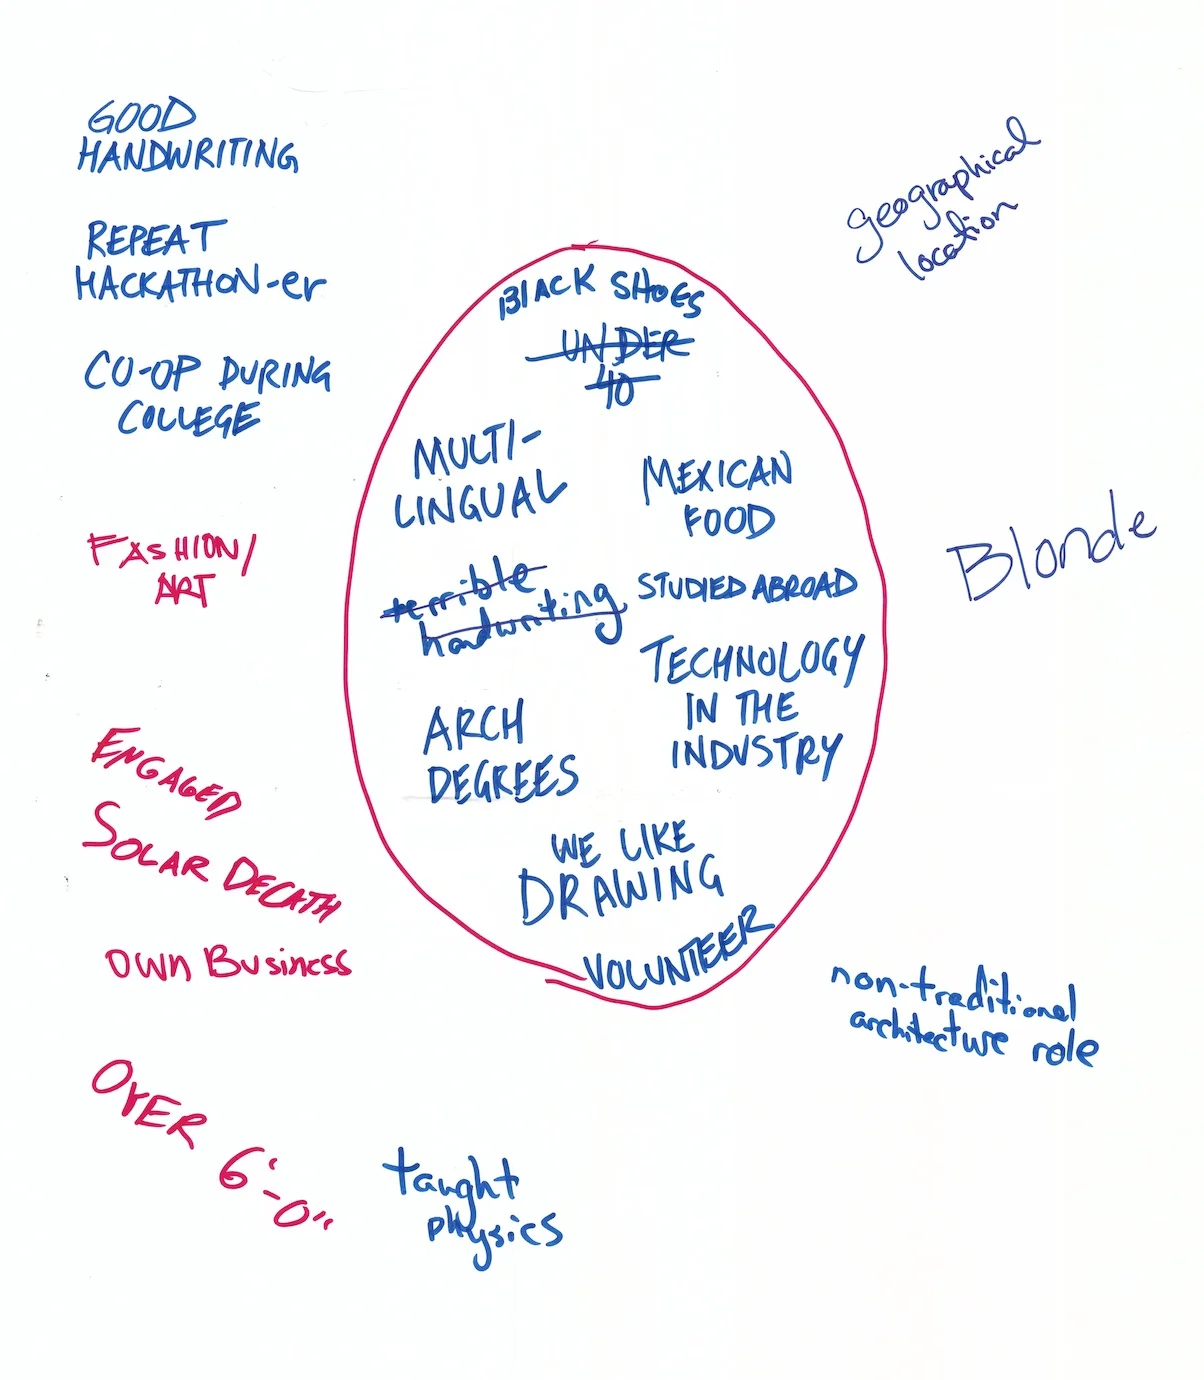 GOOD
HANDWRITING
REPEAT
HACKATHON-er
CO-OP DURING
COLLEGE
FASHION/
ART
ENGAGED
SOLAR DECATH
OWN BUSINESS
OVER 6'-0"
taught
physics
BLACK SHOES
UNDER
40
MULTI-
LINGUAL
MEXICAN
FOOD
terrible
handwriting
STUDIED ABROAD
TECHNOLOGY
IN THE
INDUSTRY
ARCH
DEGREES
WE LIKE
DRAWING
VOLUNTEER
geographical
location
Blonde
non-traditional
architecture role